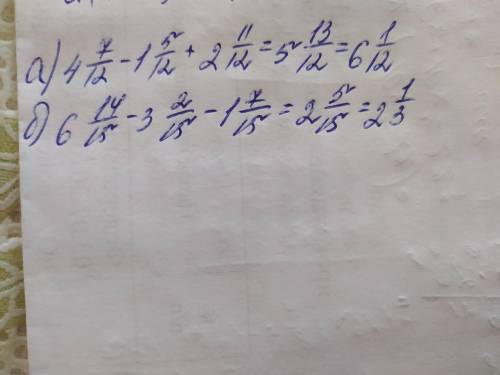 а) 4 7/12 - 1 5/12 + 2 11/12 = 5 13/12 = 6 1/12
б) 6 14/15 - 3 2/15 - 1 7/15 = 2 5/15 = 2 1/3